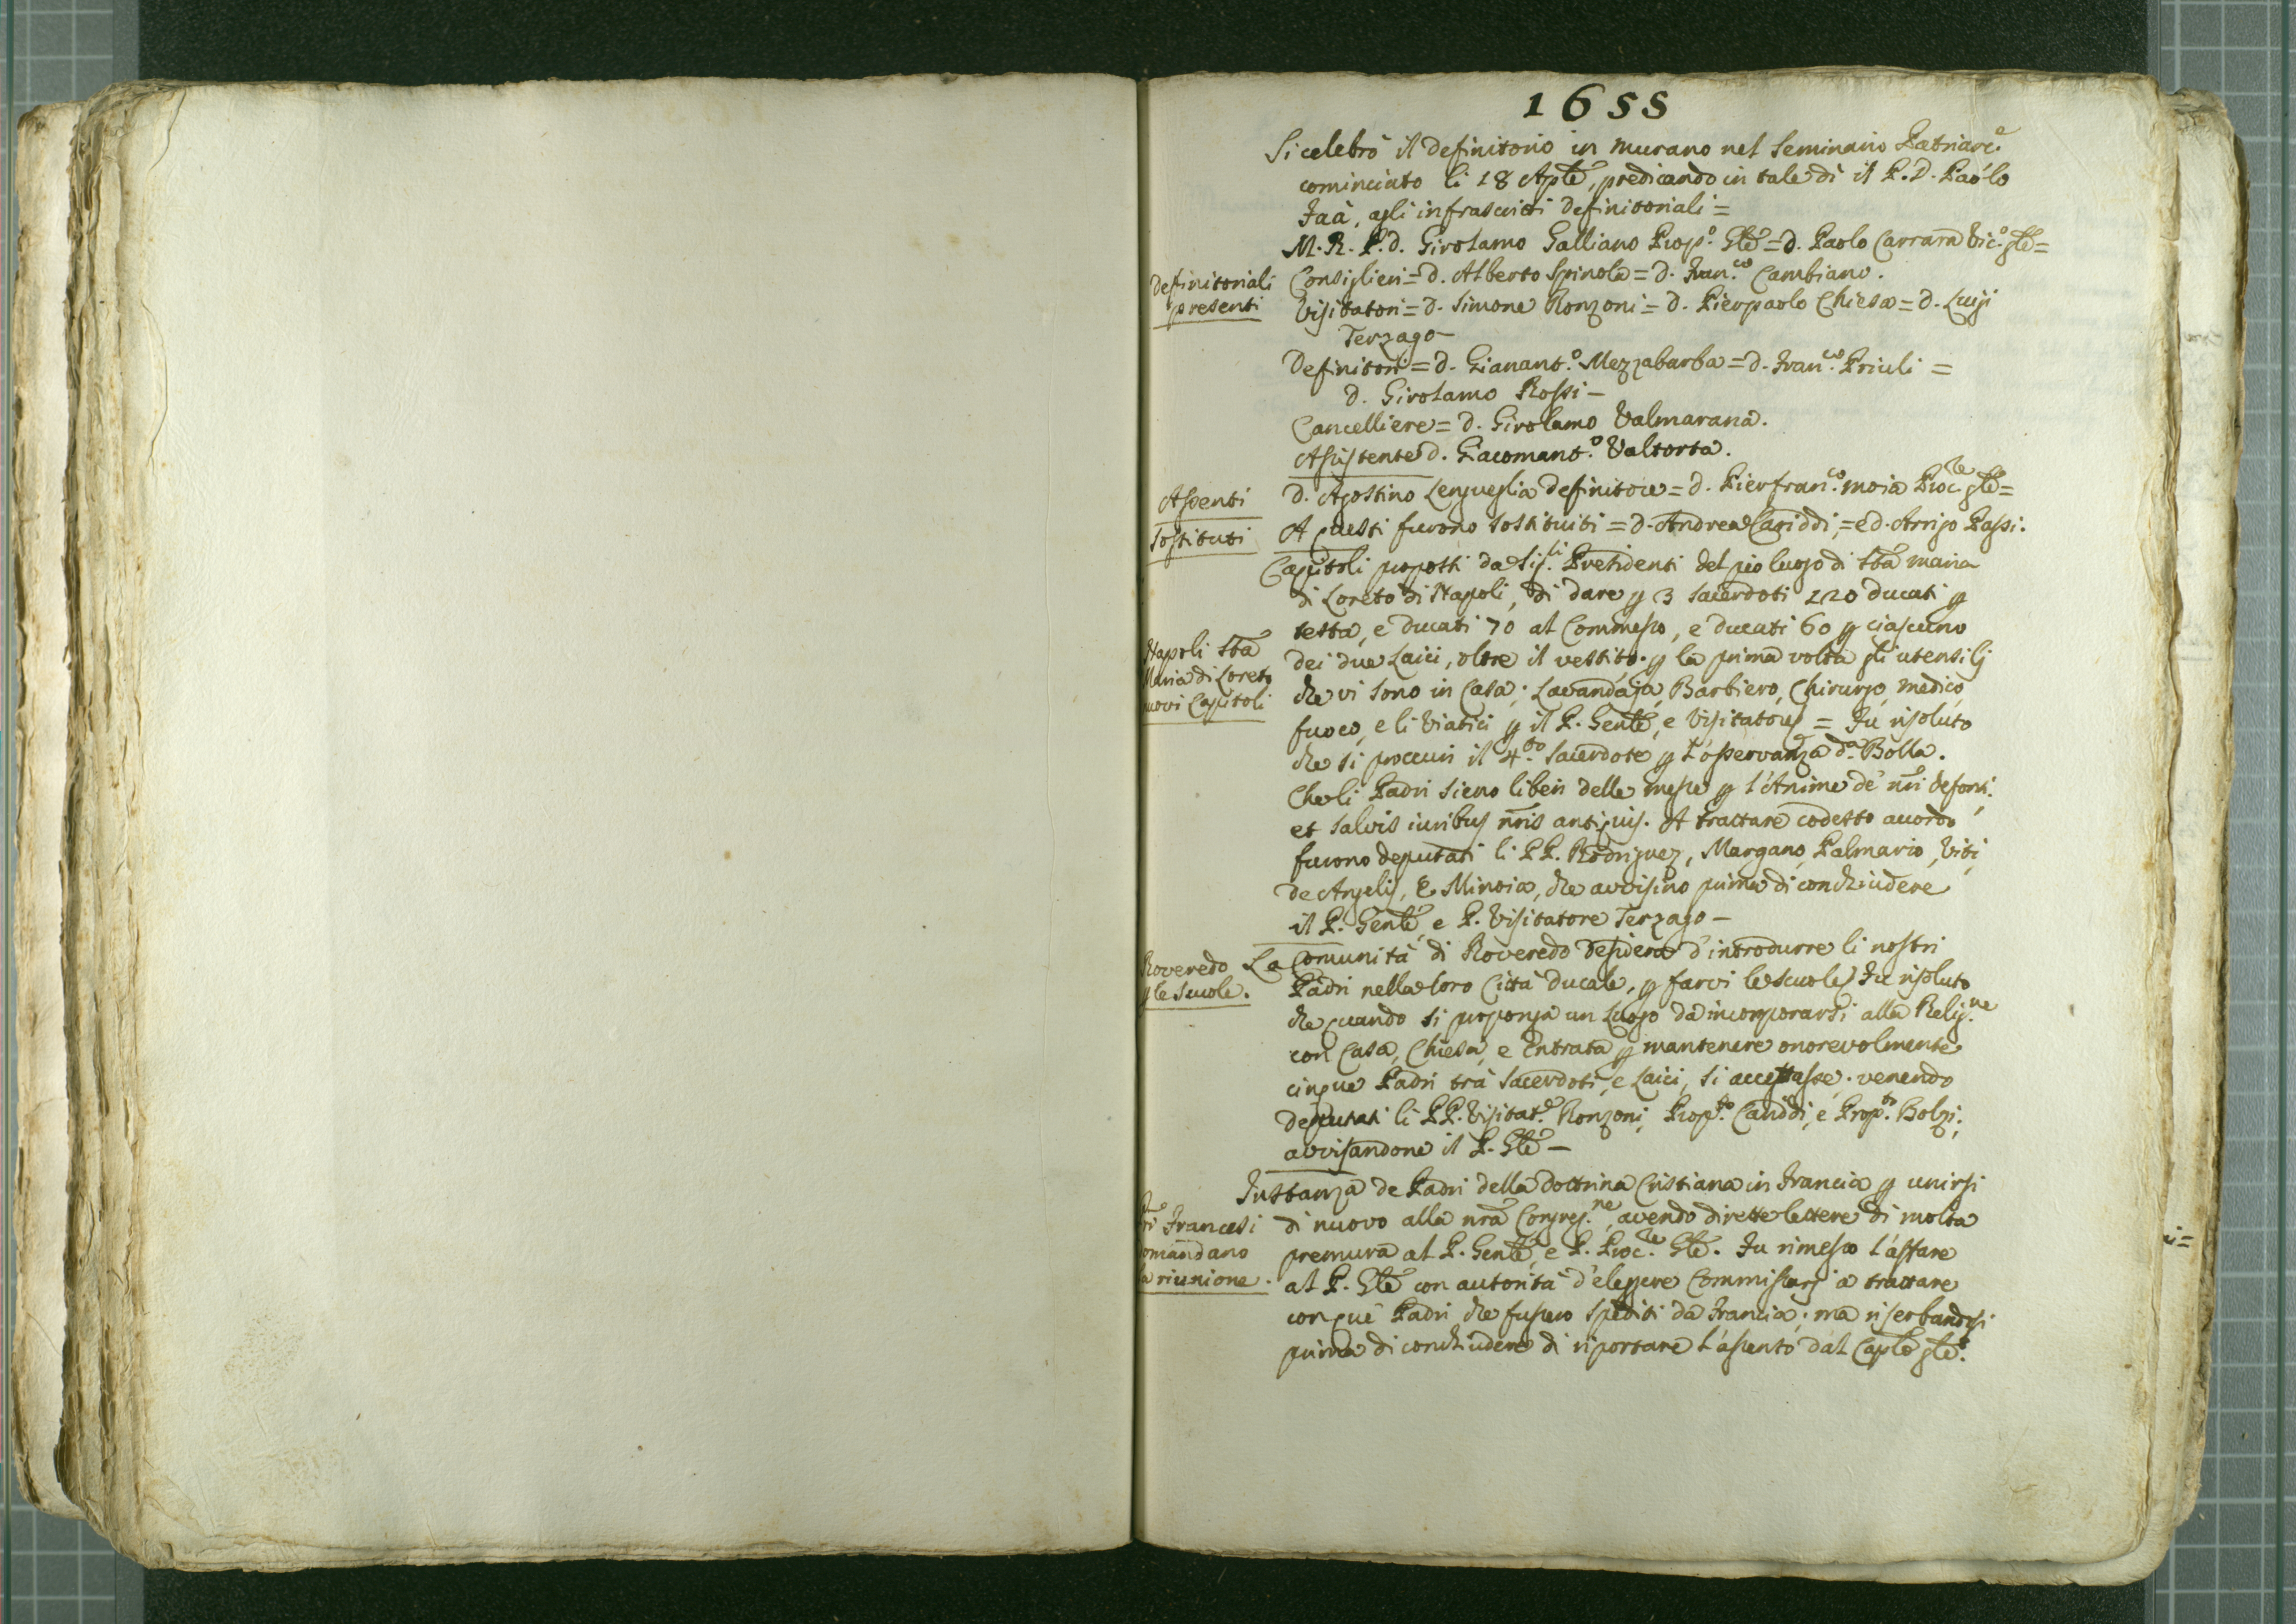 1655
Si celebrò il definitorio in Murano nel Seminario Patriarc.e
cominciato li 18 Aple, predicando in tale dì il P. D. Paolo
Isaà, agli infrascritti definitoriali =
M. R. P. d. Girolamo Galliano Prop.o Gle = d. Paolo Carrara Vic.o gle =
definitoriali
presenti
Consiglieri = d. Alberto Spinola = d. Fran.co Cambiano.
Visitatori = d. Simone Ronzoni = d. Pierpaolo Chiesa = d. Luigi
Terzago -
Definitori = d. Gianant.o Mezzabarba = d. Fran.co Priuli =
d. Girolamo Rossi -
Cancelliere = d. Girolamo Valmarana.
Assistente d. Giacomant.o Valtorta.
Assenti
D. Agostino Lengueglia definitore = d. Pierfran.co Moia Proc.re gle =
Sostituti
A questi furono sostituiti = d. Andrea Cariddi, = e d. Arrigo Passi.
Capitoli proposti da Sig.ri Presidenti del pio luogo di Sta Maria
di Loreto di Napoli, di dare p 3 Sacerdoti 120 ducati p
testa, e ducati 70 al Commesso, e ducati 60 p ciascuno
Napoli Sta
Maria di Loreto
nuovi Capitoli
dei due Laici, oltre il vestito. p la prima volta gli utensilj
che vi sono in Casa; Lavandaja, Barbiero, Chirurgo, medico,
fuoco, e li Viatici p il P. Genle, e Visitatore = Fu risoluto
che si procuri il 4.to Sacerdote p l'osservanza d.a Bolla.
Che li Padri sieno liberi delle messe p l'Anime de' nri defonti;
et salvis iuribus nris antiquis. A trattare codesto accordo
furono deputati li PP. Rodriguez, Margano, Palmario, Viti,
de Angelis, e Minoia, che avvisino prima di conchiudere
il P. Genle, e P. Visitatore Terzago -
Roveredo
p le Scuole.
La Comunità di Roveredo desidera d'introdurre li nostri
Padri nella loro Città Ducale, p farvi le scuole. Fu risoluto
che quando si proponga un Luogo da incorporarsi alla Relig.ne
con Casa, Chiesa, e Entrata p mantenere onorevolmente
cinque Padri trà Sacerdoti, e Laici, si accettasse. venendo
deputati li PP. Visitat.e Ronzoni, Prop.to Cariddi, e Prop.to Bolzi;
avvisandone il P. Gle -
Instanza de Padri della dottrina Cristiana in Francia p unirsi
Francesi
omandano
la riunione.
di nuovo alla nra Congreg.ne, avendo dirette lettere di molta
premura al P. Genle, e P. Proc.re Gle. Fu rimesso l'affare
al P. Gle con autorità d'eleggere Commissarj a trattare
con què Padri che fussero spediti da Francia; ma riserbandosi
prima di conchiudere di riportare l'assento dal Caplo gle.